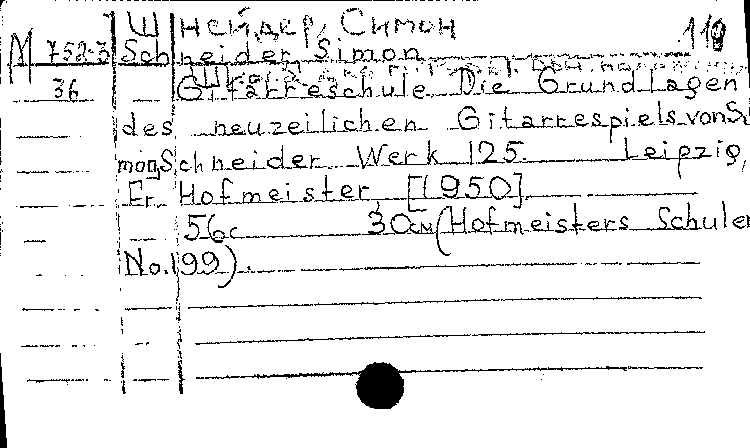 Шнейдер, Симон 119
М 752-3 Schneider, Simon
36 Gitarreschule Die Grundlagen
des neuzeilichen Gitarrespiels von Si
mon Schneider Werk 125. Leipzig,
Fr. Hofmeister, [1950]
56c 30см (Hofmeisters Schulen
No.199).